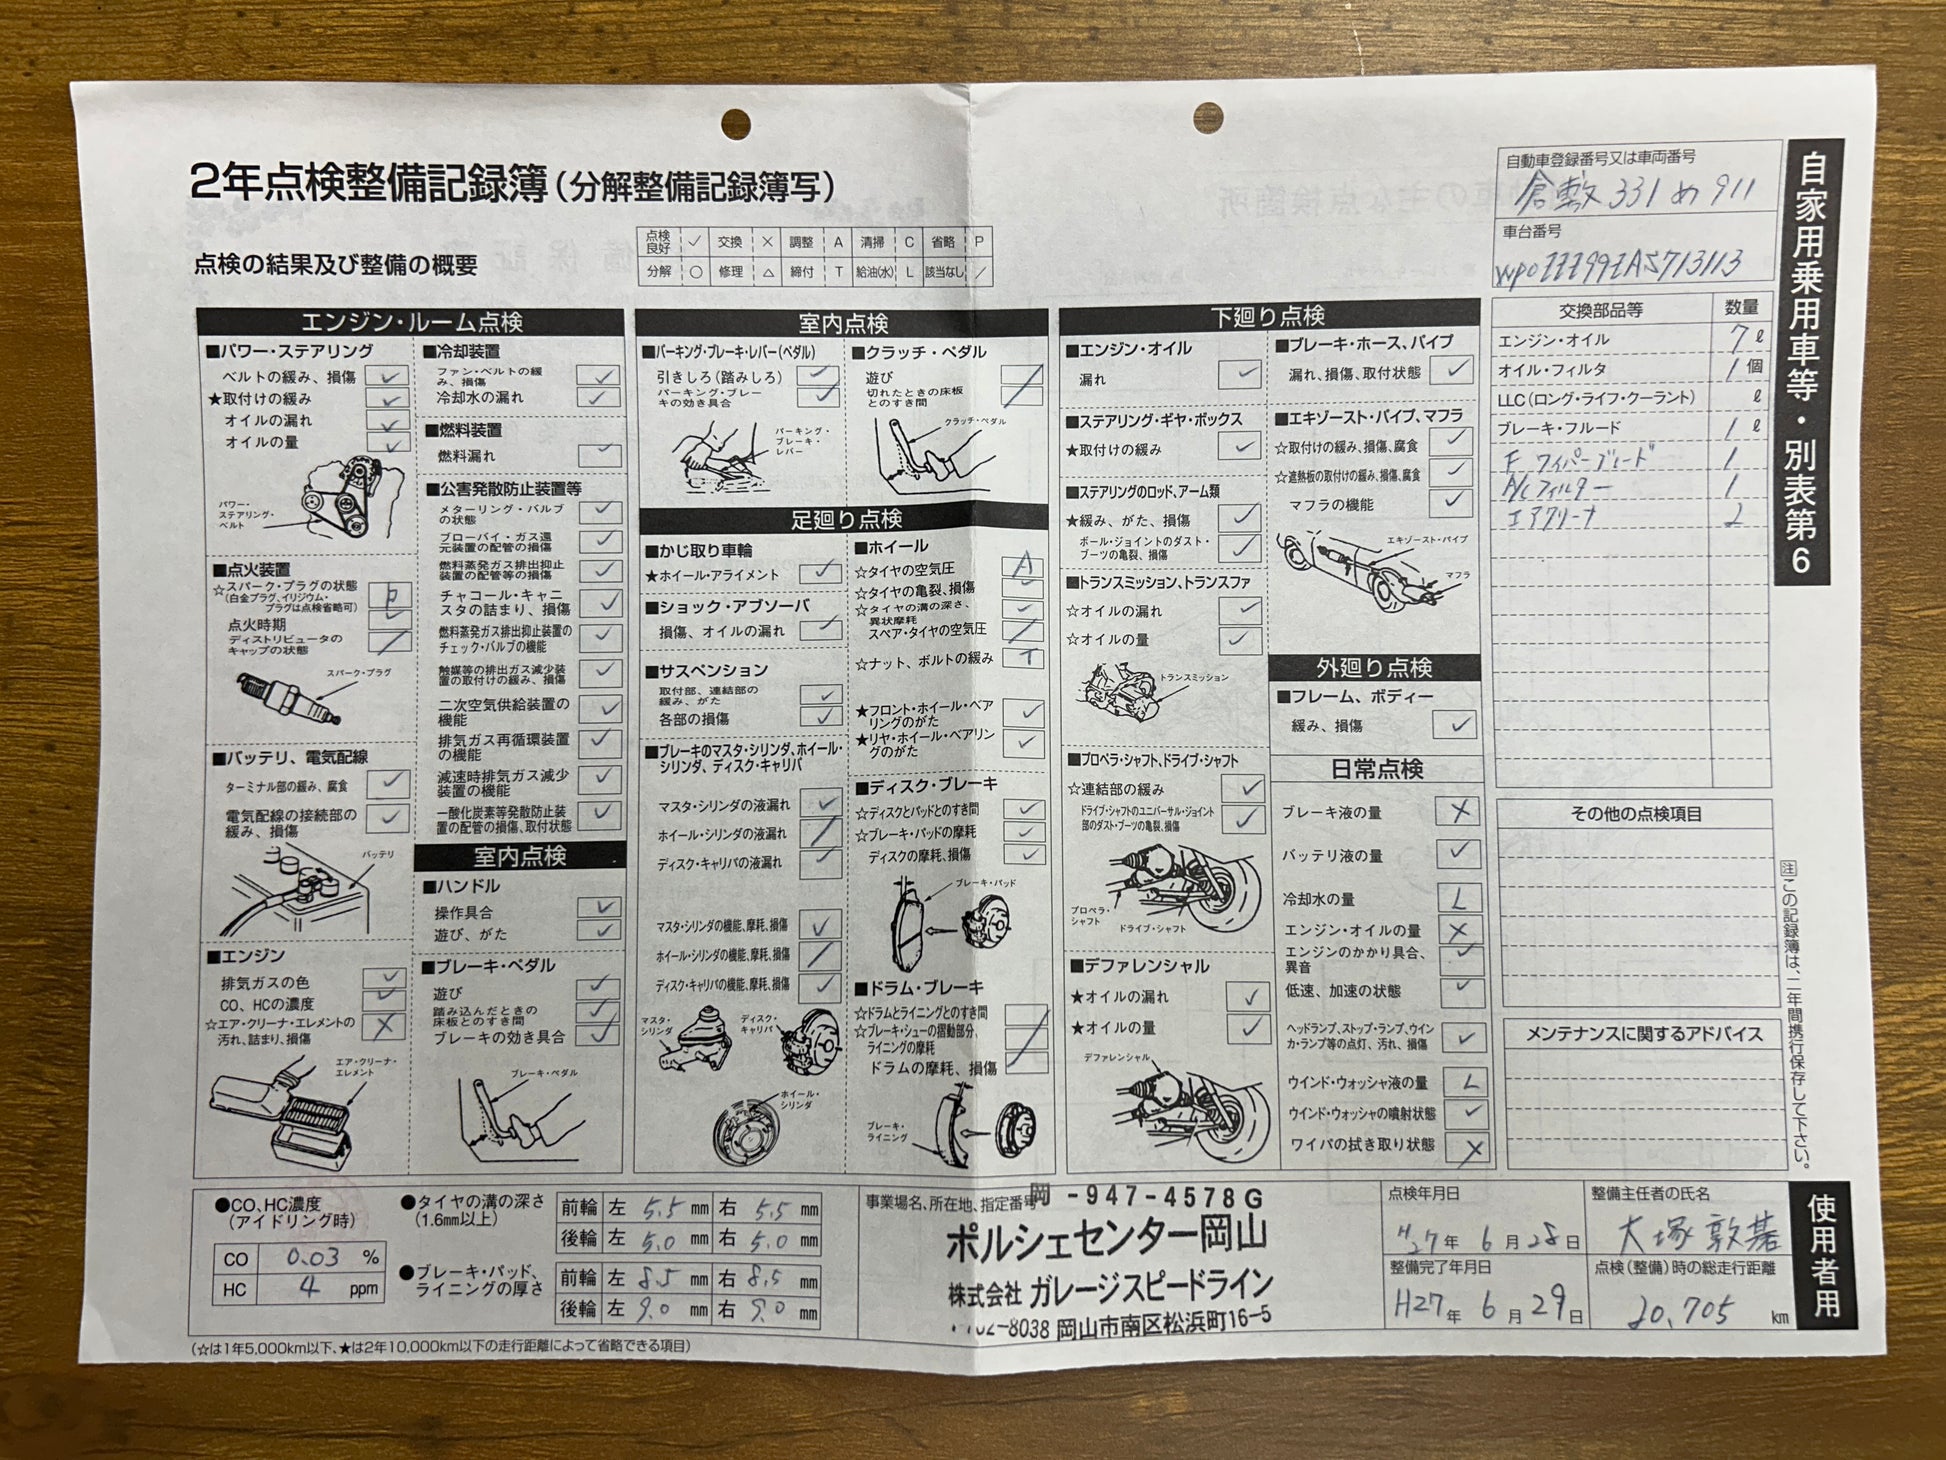 2年点検整備記録簿(分解整備記録簿写)
点検の結果及び整備の概要
点検良好 ✓ 交換 × 調整 A 清掃 C 省略 P
分解 ○ 修理 △ 締付 T 給油(水) L 該当なし /
自動車登録番号又は車両番号
倉敷 331 め 911
車台番号
WP0ZZZ99ZAS713113
自家用乗用車等・別表第6
エンジン・ルーム点検
■パワー・ステアリング
ベルトの緩み、損傷 ✓
★取付けの緩み ✓
オイルの漏れ ✓
オイルの量 ✓
パワー・
ステアリング・
ベルト
■点火装置
☆スパーク・プラグの状態 P
(白金プラグ、イリジウム・
プラグは点検省略可)
点火時期 ✓
ディストリビュータの
キャップの状態 /
スパーク・プラグ
■バッテリ、電気配線
ターミナル部の緩み、腐食 ✓
電気配線の接続部の
緩み、損傷 ✓
バッテリ
■エンジン
排気ガスの色 ✓
CO、HCの濃度 ✓
☆エア・クリーナ・エレメントの
汚れ、詰まり、損傷 ×
エア・クリーナ・
エレメント
■冷却装置
ファン・ベルトの緩
み、損傷 ✓
冷却水の漏れ ✓
■燃料装置
燃料漏れ ✓
■公害発散防止装置等
メターリング・バルブ
の状態 ✓
ブローバイ・ガス還
元装置の配管の損傷 ✓
燃料蒸発ガス排出抑止
装置の配管等の損傷 ✓
チャコール・キャニ
スタの詰まり、損傷 ✓
燃料蒸発ガス排出抑止装置の
チェック・バルブの機能 ✓
触媒等の排出ガス減少装
置の取付けの緩み、損傷 ✓
二次空気供給装置の
機能 ✓
排気ガス再循環装置
の機能 ✓
減速時排気ガス減少
装置の機能 ✓
一酸化炭素等発散防止装
置の配管の損傷、取付状態 ✓
室内点検
■ハンドル
操作具合 ✓
遊び、がた ✓
■ブレーキ・ペダル
遊び ✓
踏み込んだときの
床板とのすき間 ✓
ブレーキの効き具合 ✓
ブレーキ・ペダル
室内点検
■パーキング・ブレーキ・レバー(ペダル)
引きしろ(踏みしろ) ✓
パーキング・ブレー
キの効き具合 ✓
パーキング・
ブレーキ・
レバー
■クラッチ・ペダル
遊び /
切れたときの床板
とのすき間
クラッチ・ペダル
足廻り点検
■かじ取り車輪
★ホイール・アライメント ✓
■ショック・アブソーバ
損傷、オイルの漏れ ✓
■サスペンション
取付部、連結部の
緩み、がた ✓
各部の損傷 ✓
■ブレーキのマスタ・シリンダ、ホイール・
シリンダ、ディスク・キャリパ
マスタ・シリンダの液漏れ ✓
ホイール・シリンダの液漏れ /
ディスク・キャリパの液漏れ ✓
マスタ・シリンダの機能、摩耗、損傷 ✓
ホイール・シリンダの機能、摩耗、損傷 /
ディスク・キャリパの機能、摩耗、損傷 ✓
マスタ・
シリンダ
ディスク・
キャリパ
ホイール・
シリンダ
■ホイール
☆タイヤの空気圧 A
☆タイヤの亀裂、損傷 ✓
☆タイヤの溝の深さ、
異状摩耗 ✓
スペア・タイヤの空気圧 /
☆ナット、ボルトの緩み T
★フロント・ホイール・ベア
リングのがた ✓
★リヤ・ホイール・ベアリン
グのがた ✓
■ディスク・ブレーキ
☆ディスクとパッドとのすき間 ✓
☆ブレーキ・パッドの摩耗 ✓
ディスクの摩耗、損傷 ✓
ブレーキ・パッド
■ドラム・ブレーキ
☆ドラムとライニングとのすき間
☆ブレーキ・シューの摺動部分、
ライニングの摩耗 /
ドラムの摩耗、損傷
ブレーキ・
ライニング
下廻り点検
■エンジン・オイル
漏れ ✓
■ステアリング・ギヤ・ボックス
★取付けの緩み ✓
■ステアリングのロッド、アーム類
★緩み、がた、損傷 ✓
ボール・ジョイントのダスト・
ブーツの亀裂、損傷 ✓
■トランスミッション、トランスファ
☆オイルの漏れ ✓
☆オイルの量 ✓
トランスミッション
■プロペラ・シャフト、ドライブ・シャフト
☆連結部の緩み ✓
ドライブ・シャフトのユニバーサル・ジョイント
部のダスト・ブーツの亀裂、損傷 ✓
プロペラ・
シャフト
ドライブ・シャフト
■デファレンシャル
★オイルの漏れ ✓
★オイルの量 ✓
デファレンシャル
■ブレーキ・ホース、パイプ
漏れ、損傷、取付状態 ✓
■エキゾースト・パイプ、マフラ
☆取付けの緩み、損傷、腐食 ✓
☆遮熱板の取付けの緩み、損傷、腐食 ✓
マフラの機能 ✓
エキゾースト・パイプ
マフラ
外廻り点検
■フレーム、ボディー
緩み、損傷 ✓
日常点検
ブレーキ液の量 ×
バッテリ液の量 ✓
冷却水の量 L
エンジン・オイルの量 ×
エンジンのかかり具合、
異音 ✓
低速、加速の状態 ✓
ヘッドランプ、ストップ・ランプ、ウイン
カ・ランプ等の点灯、汚れ、損傷 ✓
ウインド・ウォッシャ液の量 L
ウインド・ウォッシャの噴射状態 ✓
ワイパの拭き取り状態 ×
交換部品等 数量
エンジン・オイル 7 ℓ
オイル・フィルタ 1 個
LLC(ロング・ライフ・クーラント) ℓ
ブレーキ・フルード 1 ℓ
F ワイパーブレード 1
A/Cフィルター 1
エアクリーナ 2
その他の点検項目
メンテナンスに関するアドバイス
注 この記録簿は、二年間携行保存して下さい。
使用者用
●CO、HC濃度
(アイドリング時)
CO 0.03 %
HC 4 ppm
●タイヤの溝の深さ
(1.6mm以上)
前輪 左 5.5 mm 右 5.5 mm
後輪 左 5.0 mm 右 5.0 mm
●ブレーキ・パッド、
ライニングの厚さ
前輪 左 8.5 mm 右 8.5 mm
後輪 左 9.0 mm 右 9.0 mm
事業場名、所在地、指定番号
岡-947-4578G
ポルシェセンター岡山
株式会社 ガレージスピードライン
702-8038 岡山市南区松浜町16-5
点検年月日
H27年 6月28日
整備完了年月日
H27年 6月29日
整備主任者の氏名
大塚 敦基
点検(整備)時の総走行距離
20,705 km
(☆は1年5,000km以下、★は2年10,000km以下の走行距離によって省略できる項目)